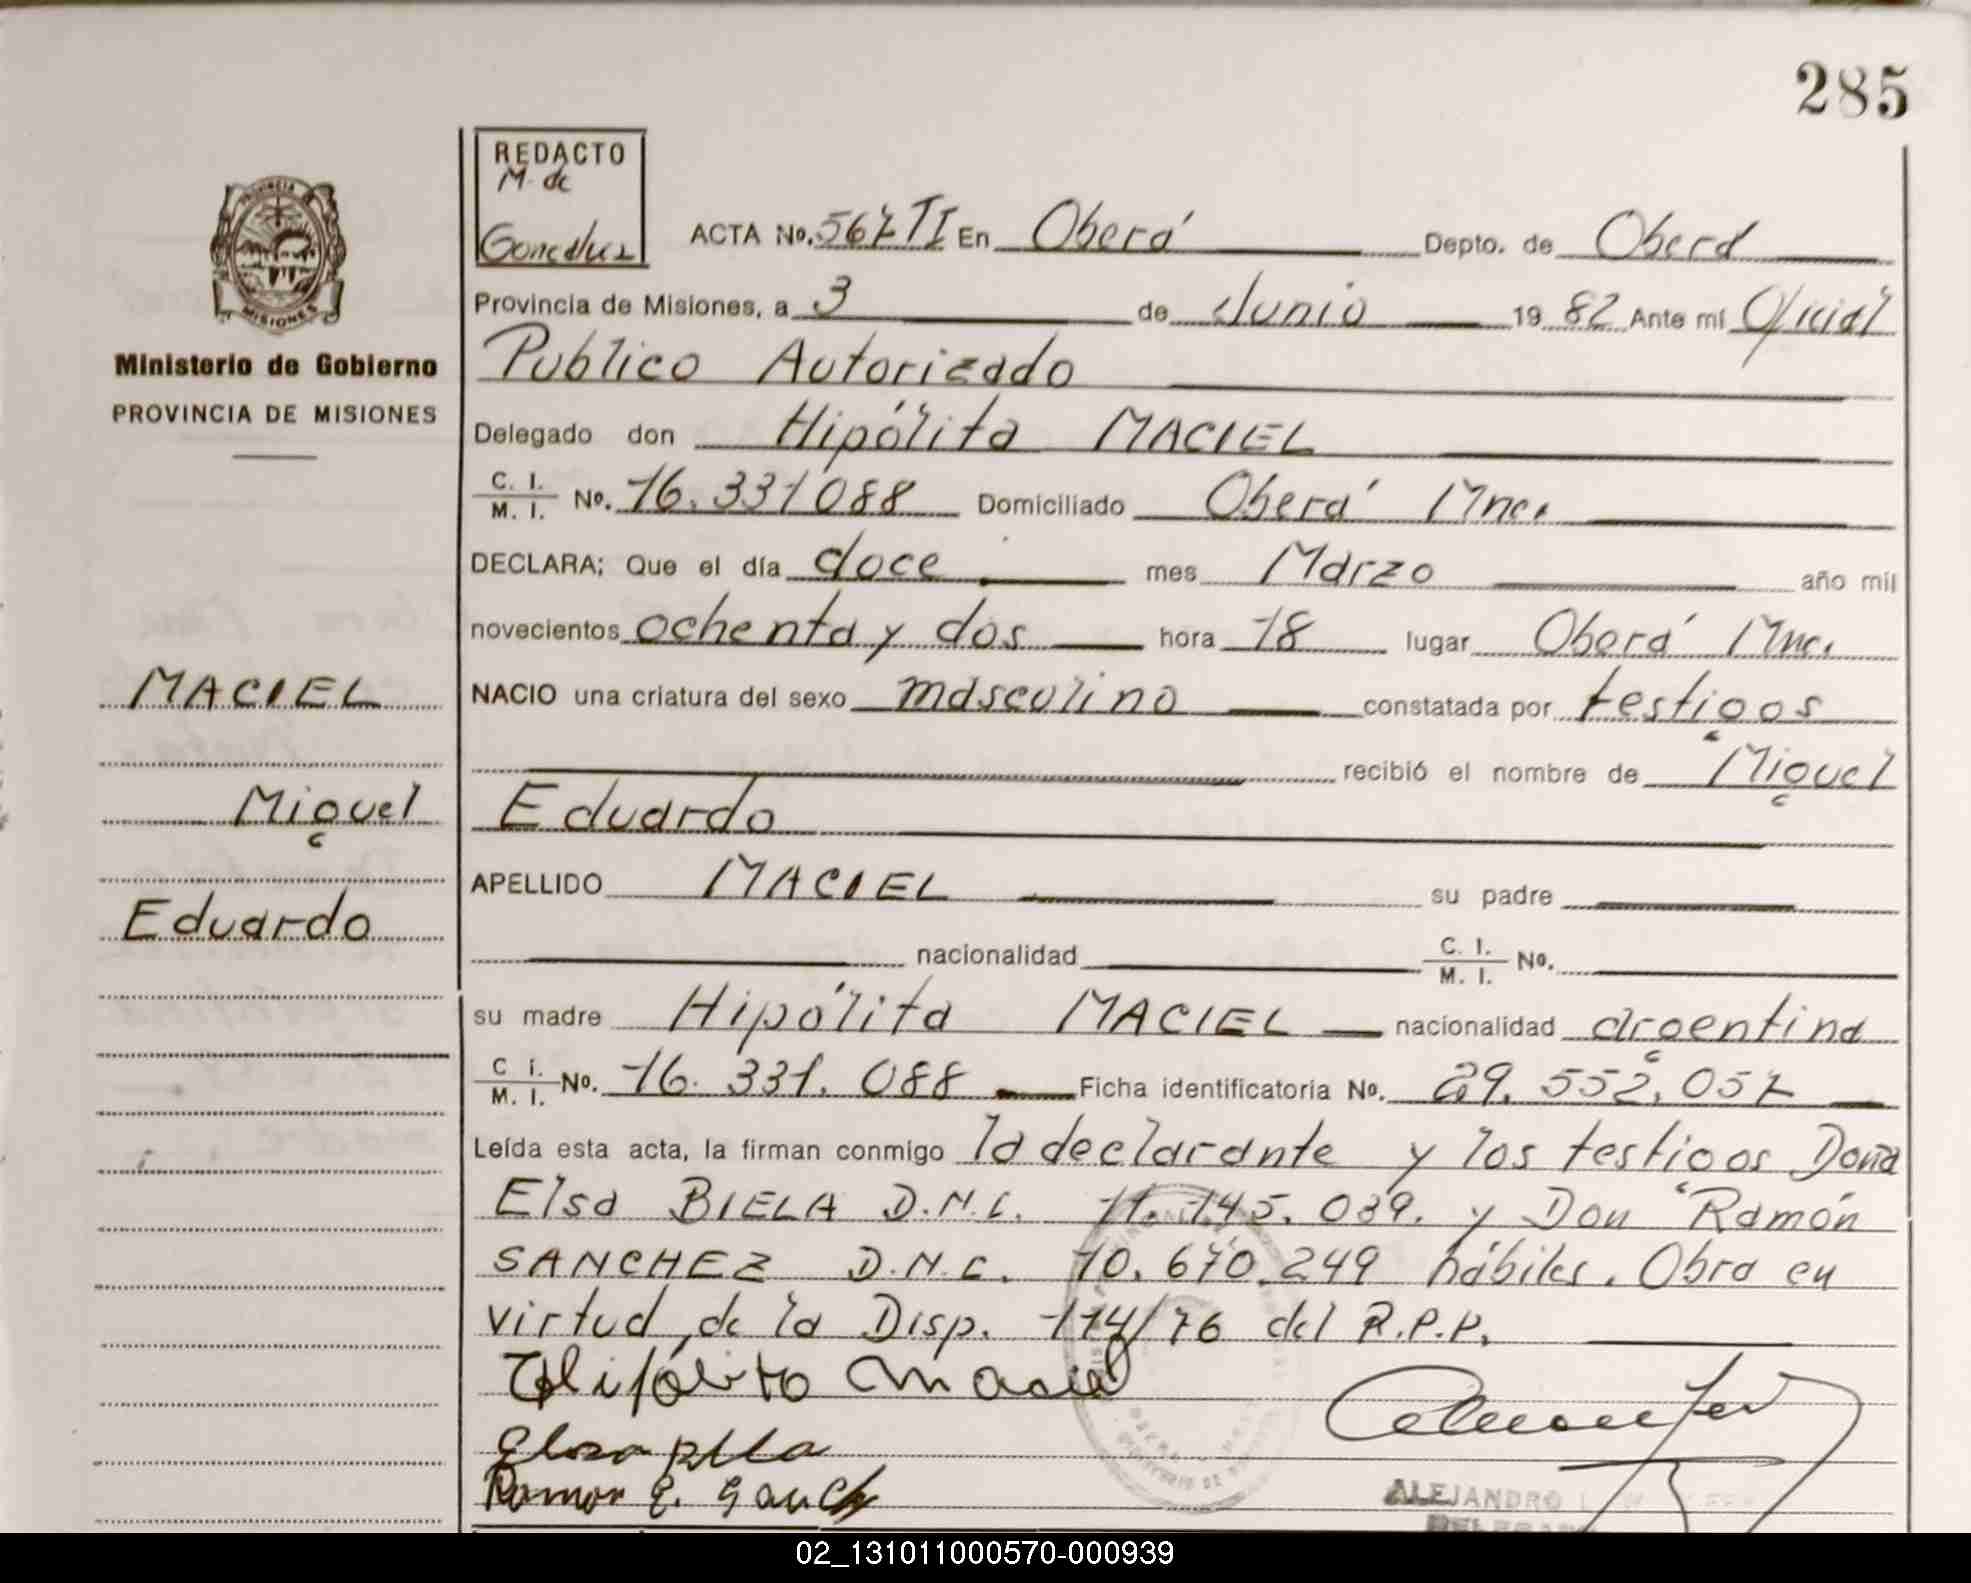 285
REDACTO
M. de
Gonzalez
ACTA No. 567 TI En Oberá Depto. de Oberá
Provincia de Misiones, a 3 de Junio 19 82 Ante mí Oficial
Ministerio de Gobierno
PROVINCIA DE MISIONES
Publico Autorizado
Delegado don Hipólita MACIEL
C. I. / M. I. No. 16.331088 Domiciliado Oberá Mnes.
DECLARA; Que el día doce mes Marzo año mil
novecientos ochenta y dos hora 18 lugar Oberá Mnes.
MACIEL
NACIO una criatura del sexo masculino constatada por testigos
recibió el nombre de Miguel
Miguel
Eduardo
APELLIDO MACIEL su padre
Eduardo
nacionalidad C. I. / M. I. No.
su madre Hipólita MACIEL nacionalidad argentina
C. I. / M. I. No. 16.331.088 Ficha identificatoria No. 29.552.057
Leída esta acta, la firman conmigo la declarante y los testigos Doña
Elsa BIELA D.N.I. 11.145.039. y Don Ramón
SANCHEZ D.N.I. 10.670.249 hábiles. Obra en
virtud de la Disp. 114/76 del R.P.P.
Maciel
Elsa
Ramon E. Sanch
ALEJANDRO
02_131011000570-000939